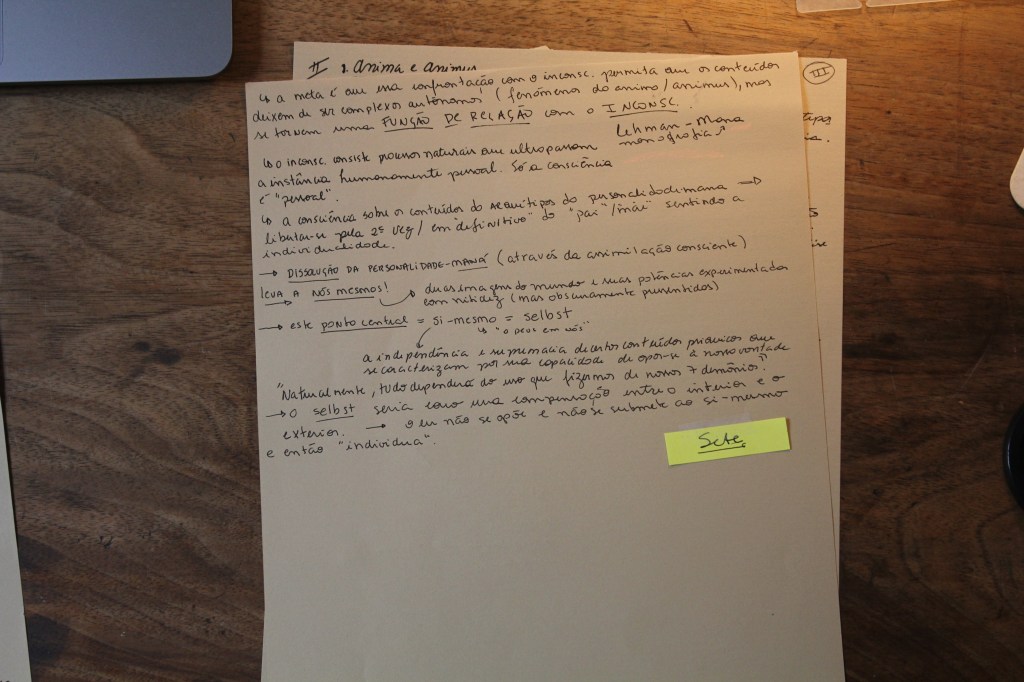 II 1. anima e animus
III
↳ a meta é que essa confrontação com o inconsc. permita que os conteúdos
deixem de ser complexos autônomos (fenômenos do animo/animus), mas
se tornem uma FUNÇÃO DE RELAÇÃO com o INCONSC.
Lehman - Mana
monografia
↳ o inconsc. consiste processos naturais que ultrapassam
a instância humanamente pessoal. Só a consciência
é "pessoal".
↳ a consciência sobre os conteúdos do arquétipos do personalidade-mana →
libertar-se pela 2ª vez / em "definitivo" do "pai"/"mãe" sentindo a
individualidade.
→ DISSOLUÇÃO DA PERSONALIDADE-MANÁ (através da assimilação consciente)
leva A NÓS MESMOS!
duas imagem do mundo e suas potências experimentados
com nitidez (mas obscuramente pressentidos)
→ este ponto central = si-mesmo = selbst
↳ "o deus em nós"
a independência e supremacia de certos conteúdos psíquicos que
se caracterizam por sua capacidade de opor-se à nossa vontade
"Naturalmente, tudo dependerá do uso que fizermos de nossos 7 demônios."
→ o selbst seria como uma compensação entre o interior e o
exterior. → o eu não se opõe e não se submete ao si-mesmo
e então "individua".
Sete